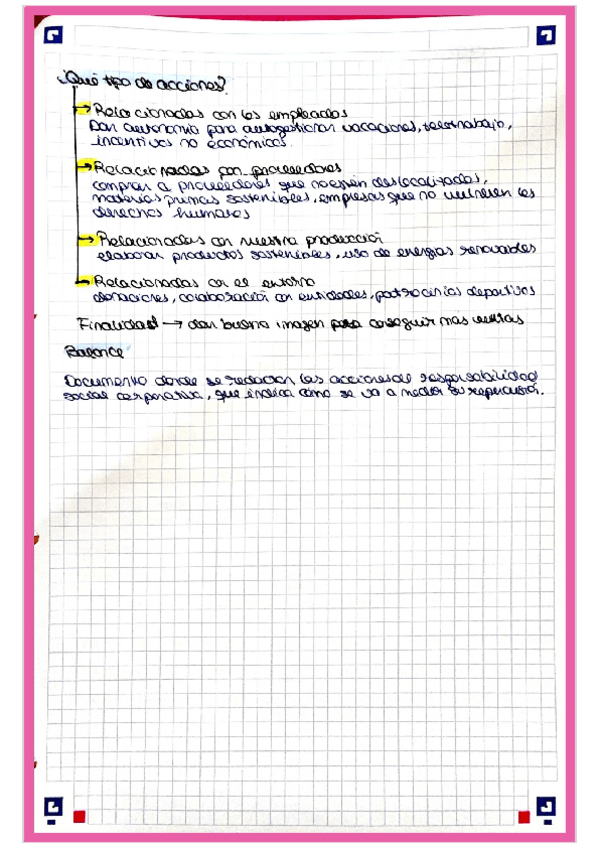 ¿Qué tipo de acciones?
→ Relacionadas con los empleados
Dar autonomía para autogestionar vacaciones, teletrabajo,
incentivos no económicos.
→ Relacionadas con proveedores
comprar a proveedores que no estén deslocalizadas,
materias primas sostenibles, empresas que no vulneren los
derechos humanos
→ Relacionadas con nuestra producción
elaborar productos sostenibles, uso de energías renovables
→ Relacionadas con el entorno
donaciones, colaboración con entidades, patrocinios deportivos
Finalidad → dar buena imagen para conseguir más ventas
Balance
Documento donde se redactan las acciones de responsabilidad
social corporativa, que indica cómo se va a medir su repercusión.